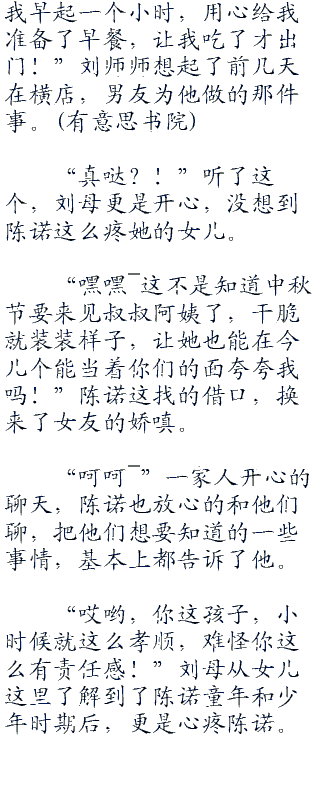 我早起一个小时，用心给我
准备了早餐，让我吃了才出
门！”刘师师想起了前几天
在横店，男友为他做的那件
事。(有意思书院)
“真哒？！”听了这
个，刘母更是开心，没想到
陈诺这么疼她的女儿。
“嘿嘿~这不是知道中秋
节要来见叔叔阿姨了，干脆
就装装样子，让她也能在今
儿个能当着你们的面夸夸我
吗！”陈诺这找的借口，换
来了女友的娇嗔。
“呵呵~”一家人开心的
聊天，陈诺也放心的和他们
聊，把他们想要知道的一些
事情，基本上都告诉了他。
“哎哟，你这孩子，小
时候就这么孝顺，难怪你这
么有责任感！”刘母从女儿
这里了解到了陈诺童年和少
年时期后，更是心疼陈诺。